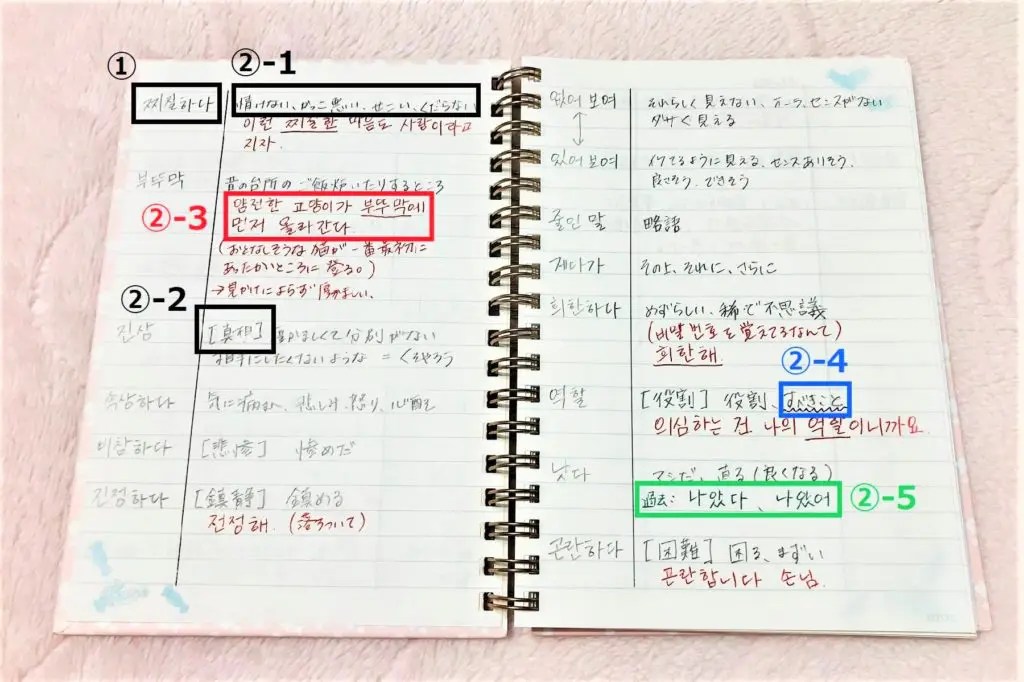 ① ②-1
찌질하다 情けない、かっこ悪い、せこい、くだらない
이런 찌질한 마음도 사랑이라고
지자.
부뚜막 昔の台所のご飯炊いたりするところ
②-3 얌전한 고양이가 부뚜막에
먼저 올라간다.
(おとなしそうな猫が一番最初に
あったかいところに登る。)
→見かけによらず厚かましい。
②-2
진상 [真相] 厚かましくて分別がない
相手にしたくないような = くそやろう
속상하다 気に病む、悲しみ、怒り、心配
비참하다 [悲惨] 惨めだ
진정하다 [鎮静] 鎮める
진정해. (落ちついて)
없어 보여 それらしく見えない、オーラ、センスがない
ダサく見える
↕
있어 보여 イケてるように見える、センスありそう、
良さそう、できそう
줄인 말 略語
게다가 その上、それに、さらに
희한하다 めずらしい、稀で不思議
(비밀번호を覚えてるなんて)
희한해.
②-4
역할 [役割] 役割、すべきこと
의심하는 건 나의 역할이니까요.
낫다 マシだ、直る(良くなる)
過去: 나았다、나았어 ②-5
곤란하다 [困難] 困る、まずい
곤란합니다 손님.